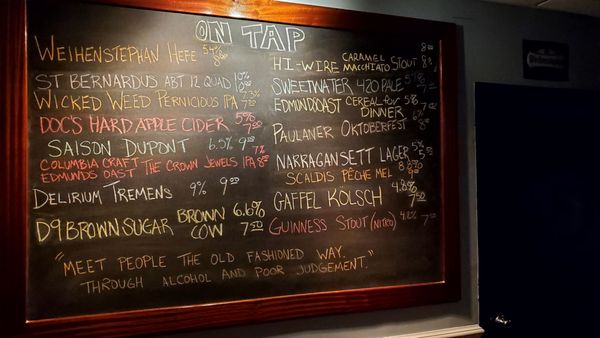 ON TAP
WEIHENSTEPHAN HEFE 5.4%
ST BERNARDUS ABT 12 QUAD 10%
WICKED WEED PERNICIOUS IPA 7.3%
DOC'S HARD APPLE CIDER 5% 7.00
SAISON DUPONT 6.5% 9.00
COLUMBIA CRAFT
EDMUNDS OAST THE CROWN JEWELS IPA 7% 8.00
DELIRIUM TREMENS 9% 9.00
D9 BROWN SUGAR BROWN COW 6.6% 7.50
HI-WIRE CARAMEL MACCHIATO STOUT
SWEETWATER 420 PALE
EDMUNDSOAST CEREAL FOR DINNER 5% 7.00
PAULANER OKTOBERFEST
NARRAGANSETT LAGER 5% 5.50
SCALDIS PÊCHE MEL
GAFFEL KÖLSCH 4.8% 7.50
GUINNESS STOUT (NITRO) 4.2% 7.00
"MEET PEOPLE THE OLD FASHIONED WAY.
THROUGH ALCOHOL AND POOR JUDGEMENT."